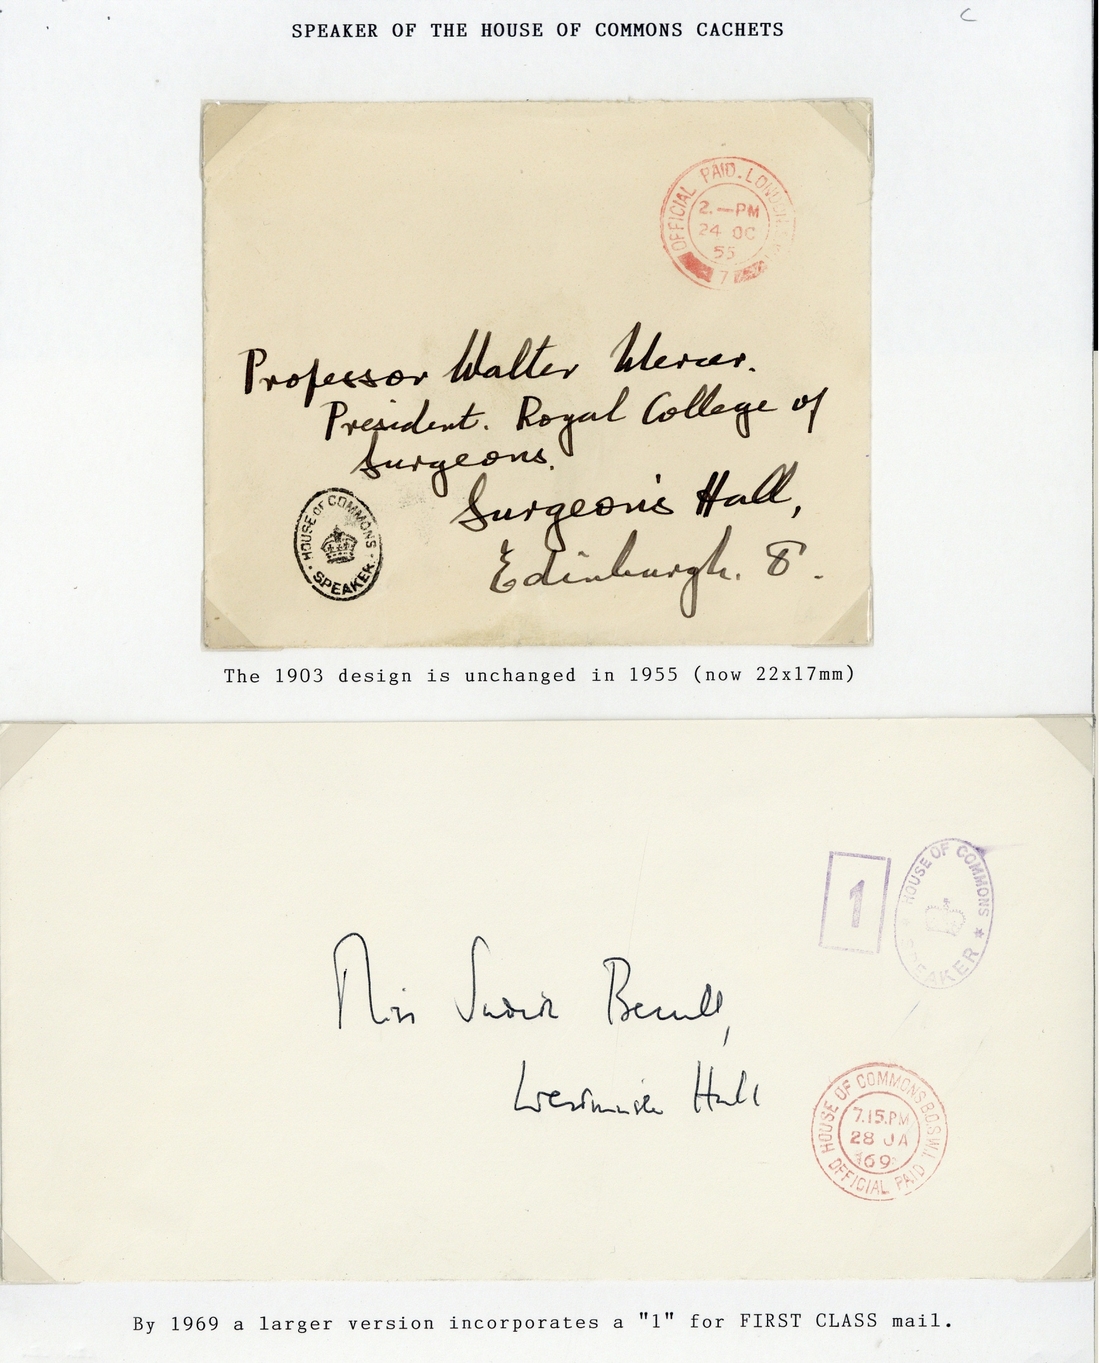 SPEAKER OF THE HOUSE OF COMMONS CACHETS
OFFICIAL PAID. LONDON
2.—PM
24 OC
55
7
Professor Walter Mercer.
President. Royal College of
Surgeons.
Surgeon's Hall,
Edinburgh. 8.
HOUSE OF COMMONS
SPEAKER
The 1903 design is unchanged in 1955 (now 22x17mm)
1
HOUSE OF COMMONS
SPEAKER
Miss
Westminster Hall
HOUSE OF COMMONS B.O.S.W.1.
7.15.PM
28 JA
69
OFFICIAL PAID
By 1969 a larger version incorporates a "1" for FIRST CLASS mail.